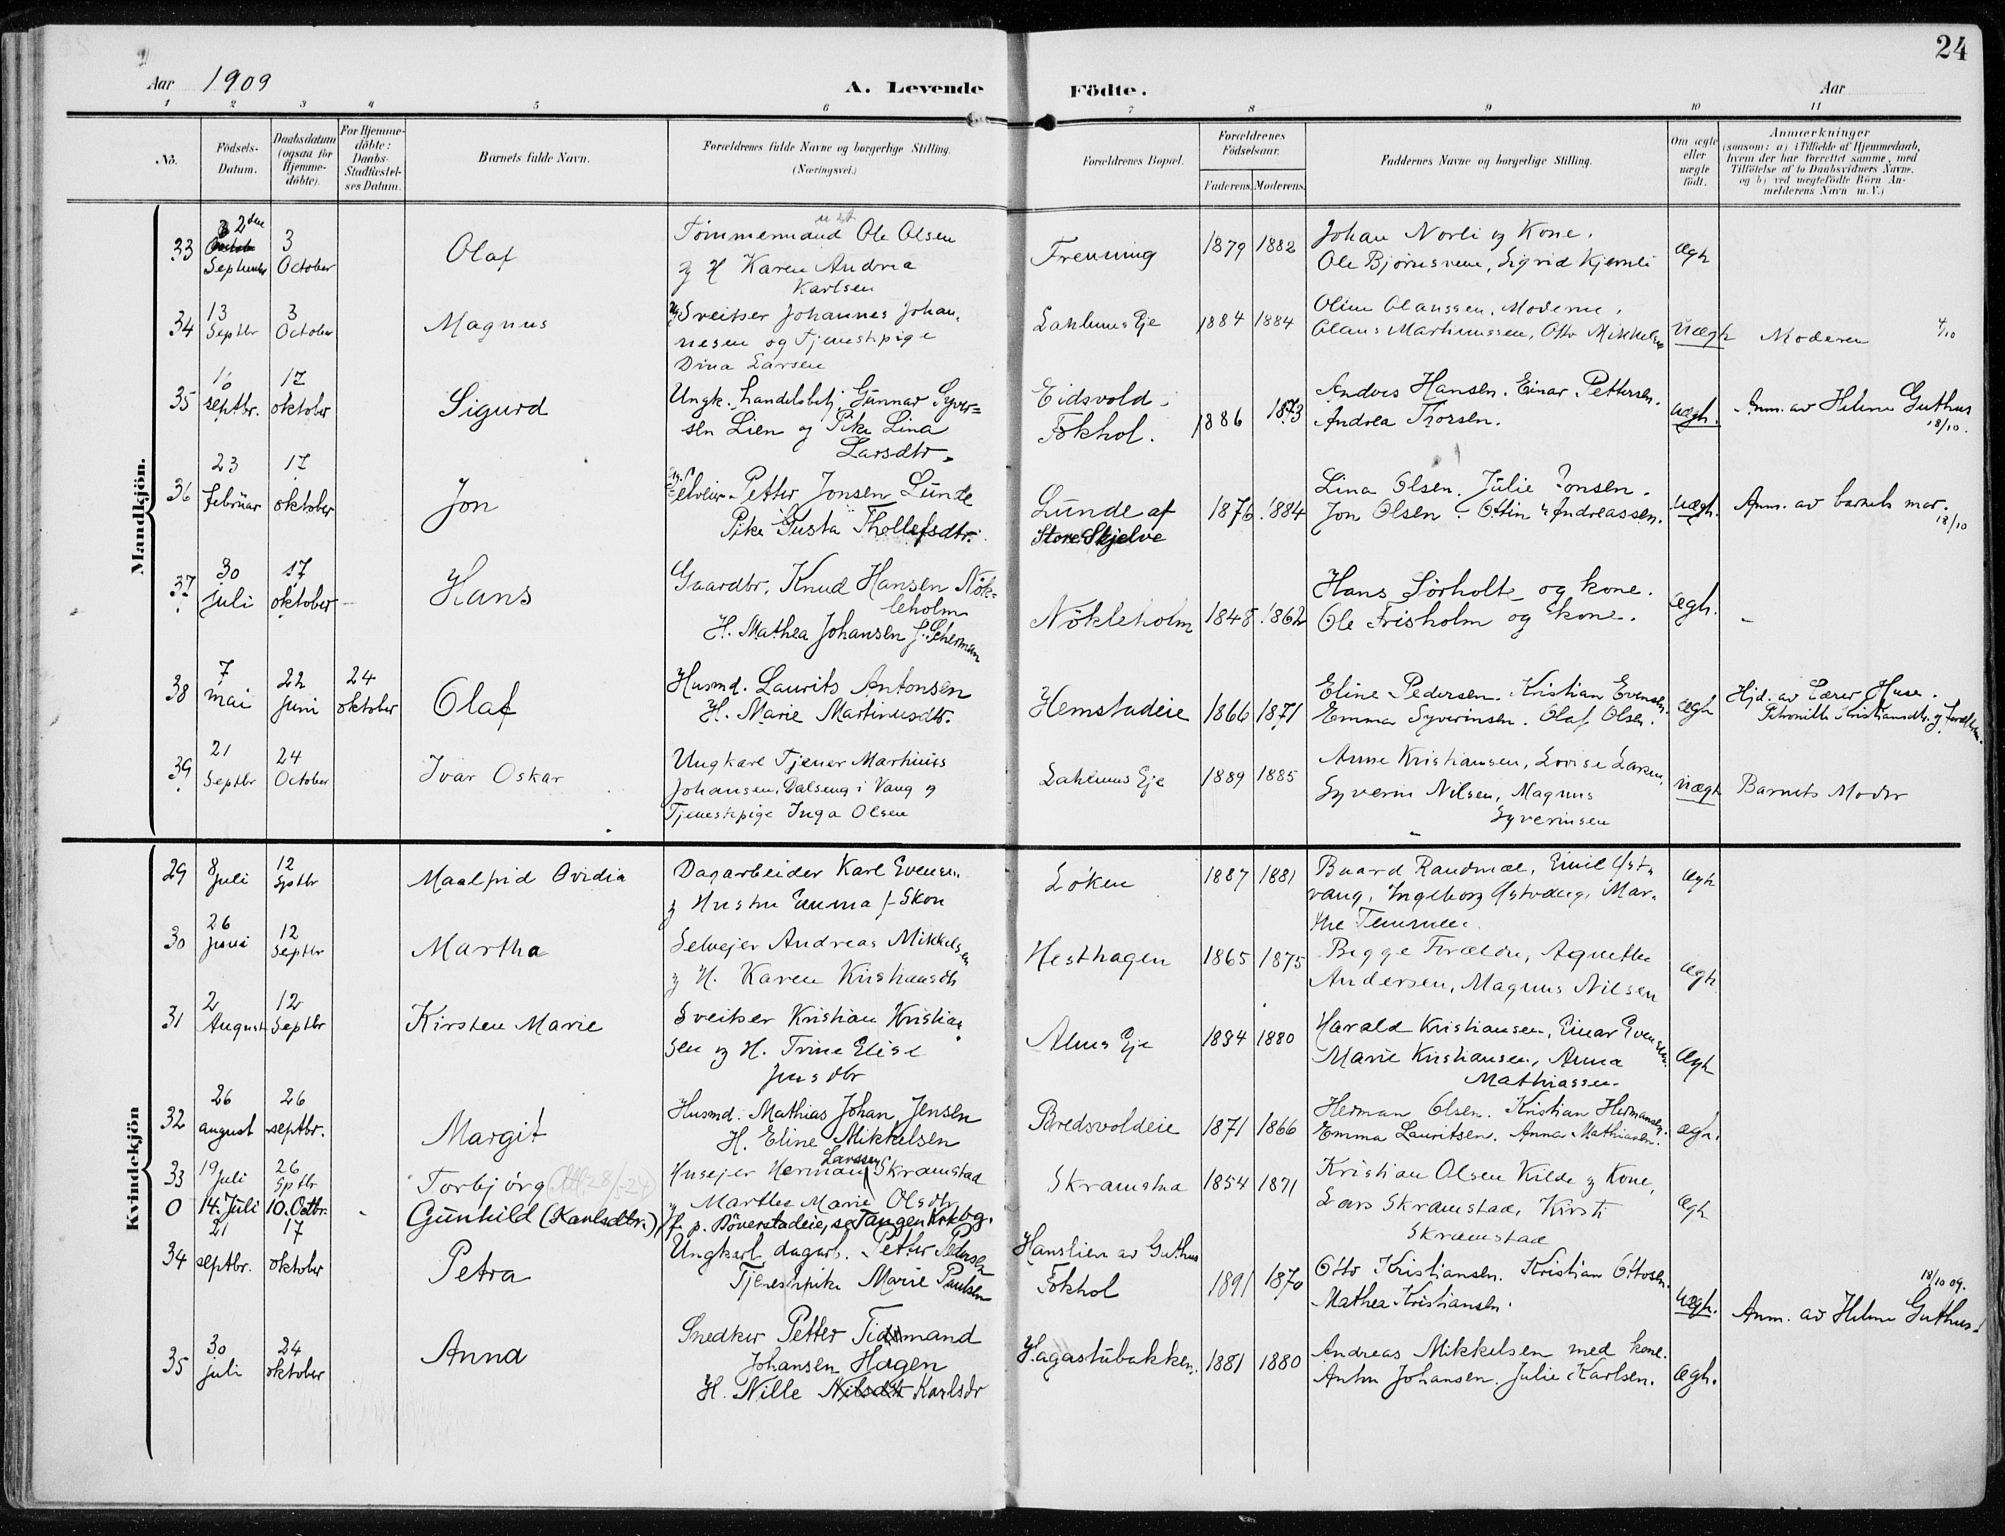 24
Aar 1909
A. Levende Födte.
Aar
1 2 3 4 5 6 7 8 9 10 11
No.
Födsels-Datum.
Daabsdatum (ogsaa for Hjemmedöbte).
For Hjemmedöbte: Daabs-Stadfæstelses Datum.
Barnets fulde Navn.
Forældrenes fulde Navne og borgerlige Stilling. (Næringsvei.)
Forældrenes Bopæl.
Forældrenes Födselsaar.
Faderens. Moderens.
Faddernes Navne og borgerlige Stilling.
Om ægte eller uægte födt.
Anmærkninger
(saasom: a) i Tilfælde af Hjemmedaab, hvem der har forrettet samme, med Tilföielse af to Daabsvidners Navne, og b) ved uægtefödte Börn Anmelderens Navn m. V.)
Mandkjön.
33 2den September 3 October Olaf
Tømmermand Ole Olsen
og H Karen Andrea
Karlsen
Frenning 1879 1882
Johan Norli og Kone.
Ole Bjørnsveen, Sigrid Kjernli
ægh
34 13 Septbr 3 October Magnus
Sveitser Johannes Johan-
nesen og Tjenestepige
Dina Larsen
Laklums Eje 1884 1884
Oline Olaussen, Moderne,
Olaus Marthinussen, Otto Mikkelsen
uægh Moderen 4/10
35 16 septbr. 17 oktober Sigurd
Ungk. handelsbetj. Gunnar Syver-
sen Lien og Pike Lina
Larsdtr.
Eidsvold -
Fokhol. 1886 1873
Anders Hansen. Einar Pettersen.
Andrea Thorsen.
uægh. Anm. av Helene Guthus
18/10.
36 23 februar 17 oktober Jon
Petter Jonsen Lunde
Pike Gusta Thollefsdtr.
Lunde af
Store Skjelve 1876 1884
Lina Olsen. Julie Jonsen.
Jon Olsen. Ottin Andreassen.
uægh. Anm. av barnets mor.
18/10
37 30 juli 17 oktober Hans
Gaardbr. Knud Hansen Nök-
leholm
H. Mathea Johansen f. Scherman
Nökleholm 1848 1862
Hans Sörholte og kone.
Ole Frisholm og kone.
ægh. -
38 7 mai 22 juni 24 oktober Olaf
Husmd. Laurits Antonsen
H. Marie Martinusdtr.
Hemstadeie 1866 1871
Eline Pedersen. Kristian Evensen.
Emma Syverinsen. Olaf Olsen.
ægh Hjd. av Lærer Huse.
Petronille Kristiansdtr. og
39 21 Septbr 24 October Ivar Oskar
Ungkarl Tjener Marthinus
Johansen, Dalseng i Vang og
Tjenestepige Inga Olsen
Laklums Eje 1889 1885
Anne Kristiansen, Lovise Larsen,
Syverin Nilsen, Magnus
Syverinsen
uægt Barnets Moder
Kvindekjön
29 8 juli 12 Sptbr Maalfrid Ovidia
Dagarbeider Karl Evensen
og Hustru Emma f. Skou
Löken 1887 1881
Baard Raudmæl, Emil Östa
vang, Ingeborg Østvang, Mar-
the
ægh
30 26 juni 12 Septbr Martha
Selvejer Andreas Mikkelsen
og H. Karen Kristiansdtr
Hesthagen 1865 1875
Begge Forældre, Agnethe
Andersen, Magnus Nilsen
ægh
31 2 August 12 Septbr Kirsten Marie
Sveitser Kristian Kristian-
sen og H. Trine Elise
Jensdtr
Alms Eje 1884 1880
Harald Kristiansen, Einar Evensen
Marie Kristiansen, Anna
Mathiassen.
ægh
32 26 august 26 septbr. Margit
Husmd. Mathias Johan Jensen
H. Eline Mikkelsen
Bredsvoldeie 1871 1866
Herman Olsen. Kristian Hermansen.
Emma Lauritsen. Anna Mathiasen.
ægh.
33 19 juli 26 Sptbr Torbjörg
Husejer Herman Larssen Skramstad
og Marthe Marie Olsdtr
Skramstad 1854 1871
Kristian Olsen Kilde og Kone,
Lars Skramstad, Kirsti
Skramstad
ægh
0 14. Juli 10. Octbr. Gunhild (Karlsdtr.)
f. p. Röverstadeie, se Tangen Kirkbg.
34 21 septbr. 17 oktober Petra
Ungkarl dagarb. Petter Pedersen
Tjenestepike Marie Paulsen
Hanslien av Guthus
Fokhol 1891 1870
Otto Kristiansen. Kristian Ottosen.
Mathea Kristiansen.
uægh. 18/10 09.
Anm. av Helene Guthus
35 30 juli 24 oktober Anna
Snedker Petter Tidemand
Johansen Hagen
H. Nille Karlsdr
Hagastubakken 1881 1880
Andreas Mikkelsen med kone.
Anton Johansen. Julie Karlsen.
ægh.